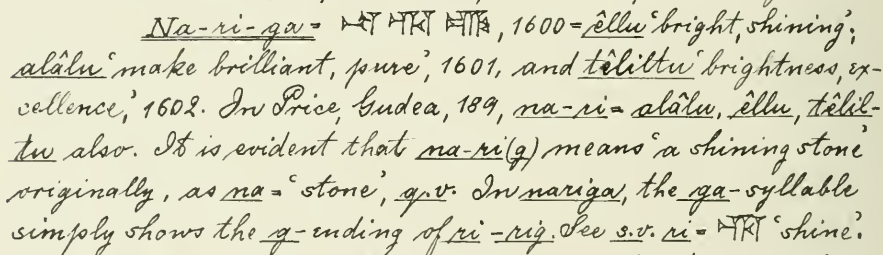 Na-ri-ga = 𒈾 𒊑 𒂵, 1600 = êllu ‘bright, shining’;
alâlu ‘make brilliant, pure’, 1601, and têliltu ‘brightness, ex-
cellence,’ 1602. In Price, Gudea, 189, na-ri = alâlu, êllu, têlil-
tu also. It is evident that na-ri(g) means ‘a shining stone’
originally, as na = ‘stone’, q.v. In nariga, the ga-syllable
simply shows the g-ending of ri-rig. See s.v. ri = 𒊑 ‘shine’.